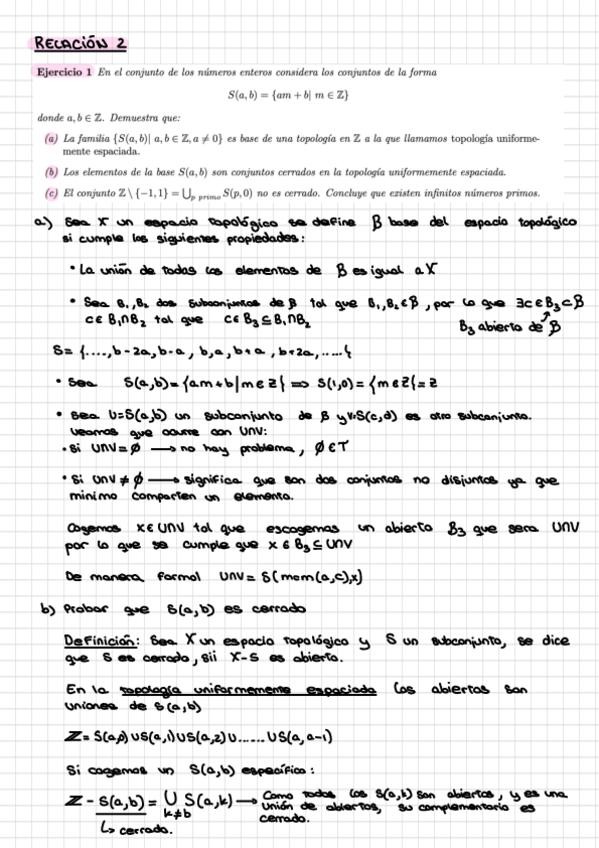 RELACIÓN 2
Ejercicio 1 En el conjunto de los números enteros considera los conjuntos de la forma
S(a, b) = {am + b| m ∈ ℤ}
donde a, b ∈ ℤ. Demuestra que:
(a) La familia {S(a, b)| a, b ∈ ℤ, a ≠ 0} es base de una topología en ℤ a la que llamamos topología uniforme-
mente espaciada.
(b) Los elementos de la base S(a, b) son conjuntos cerrados en la topología uniformemente espaciada.
(c) El conjunto ℤ \ {−1, 1} = ⋃p primo S(p, 0) no es cerrado. Concluye que existen infinitos números primos.
a) Sea X un espacio topológico se define β base del espacio topológico
si cumple las siguientes propiedades:
• La unión de todas los elementos de β es igual a X
• Sea B₁, B₂ dos subconjuntos de β tal que B₁, B₂ ∈ β, por lo que ∃c ∈ B₃ ⊂ β
c ∈ B₁∩B₂ tal que c ∈ B₃ ⊆ B₁∩B₂
B₃ abierto de β
S = {...., b-2a, b-a, b, a, b+a, b+2a, .....{
• Sea S(a,b) = {am+b | m ∈ ℤ} ⟹ S(1,0) = {m ∈ ℤ{ = ℤ
• Sea U=S(a,b) un subconjunto de β y V=S(c,d) es otro subconjunto.
Veamos que ocurre con U∩V:
• Si U∩V = ∅ ⟶ no hay problema, ∅ ∈ T
• Si U∩V ≠ ∅ ⟶ significa que son dos conjuntos no disjuntos ya que
minimo comparten un elemento.
Cogemos x ∈ U∩V tal que escogemos un abierto B₃ que sera U∩V
por lo que se cumple que x ∈ B₃ ⊆ U∩V
De manera formal U∩V = S(mcm(a,c),x)
b) Probar que S(a,b) es cerrado
Definición: Sea X un espacio topológico y S un subconjunto, se dice
que S es cerrado, sii X-S es abierto.
En la topología uniformemente espaciada los abiertos son
uniones de S(a,b)
ℤ = S(a,0) ∪ S(a,1) ∪ S(a,2) ∪ ...... ∪ S(a, a-1)
Si cogemos un S(a,b) específico:
ℤ - S(a,b) = ⋃ S(a,k) ⟶ Como todos los S(a,b) son abiertos, y es una
k≠b unión de abiertos, su complementario es
↳ cerrado. cerrado.